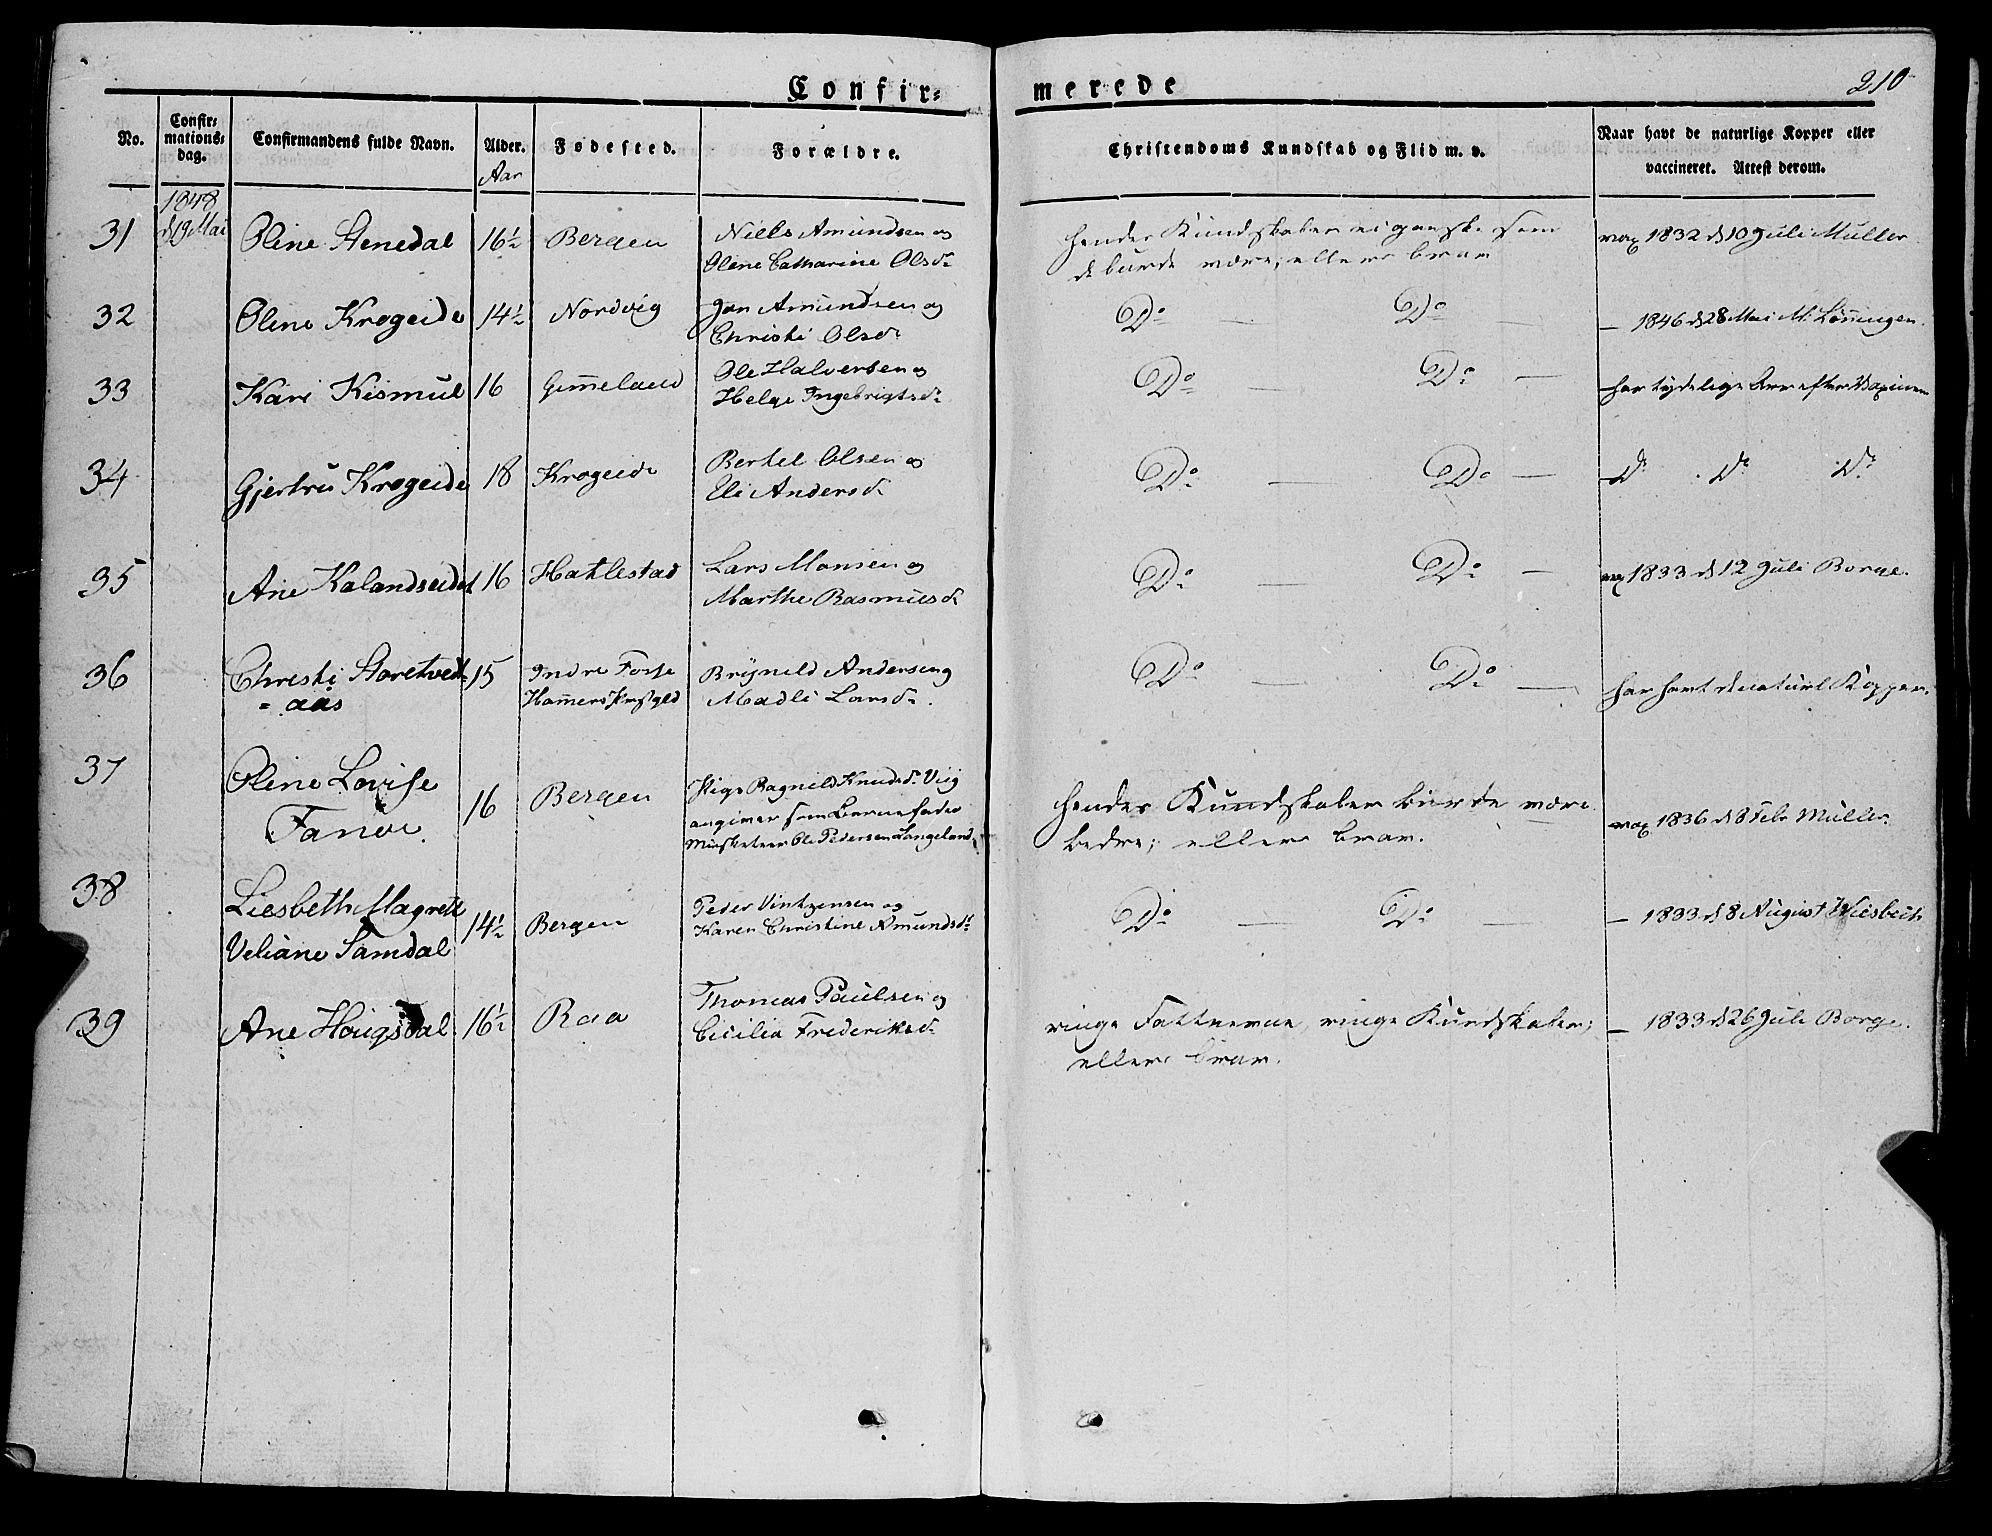 Confir-merede
210
No.
Confir-mations-dag.
Confirmandens fulde Navn.
Alder.
Aar
Fødested.
Forældre.
Christendoms Kundskab og Flid m. v.
Naar havt de naturlige Kopper eller
vaccineret. Attest derom.
1848
d 9 Mai
31 Oline Stenedal 16½ Bergen Niels Amundsen og
Olene Catharine Olsdr
hendes Kundskaber ei ganske som
de burde være; ellers brav
vax 1832 d 10 Juli Müller
32 Oline Krogeide 14½ Nordvig Jan Amundsen og
Christi Olsdr
Do — Do —
— 1846 d 28 Mai M. Lønningen.
33 Kari Kismul 16 Gimmeland Ole Halversen og
Helge Ingebrigtsdr
Do — Do —
har tydelige Arr efter Vaxinen
34 Gjertru Krogeide 18 Krogeide Bertel Olsen og
Eli Andersdr
Do — Do —
Do Do Do
35 Ane Kalandseidet 16 Hatlestad Lars Monsen og
Marthe Rasmusdr
Do — Do —
vax 1833 d 12 Juli Borge.
36 Christi Storetvedt
= aas
15 Indre Fosse
Hammers Præstgjeld
Brynild Andersen og
Madli Larsdr.
Do — Do —
har havt de naturl Kopper.
37 Oline Lovise
Fanøe.
16 Bergen
Pige Ragnild Knudsdr Viig
angiver som Barnefader
Musketeer Ole Pedersen Langeland
hendes Kundskaber burde være
bedre; ellers brav.
vax 1836 d 8 Febr Müller.
38 Liesbeth Magrete
Veliane Samdal
14½ Bergen
Peder Vintzensen og
Karen Christine Amundsdr
Do — Do —
— 1833 d 8 August Wiesbech
39 Ane Hougsdal 16½ Raa Thomas Paulsen og
Cicilia Frederiksdr
ringe Fatteevne, ringe Kundskaber;
ellers brav.
— 1833 d 26 Juli Borge.